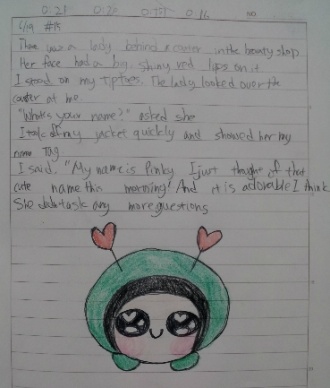 0:21 0:20 0:18 0:16 NO
4/19 #15
There was a lady behind a counter in the beauty shop
Her face had a big shiny red lips on it
I stood on my tiptoes. The lady looked over the
counter at me
"What's your name?" asked she
I took off my jacket quickly and showed her my
name tag
I said. "My name is Pinky. I just thought of that
cute name this morning! And it is adorable I think
She didn't ask any more questions